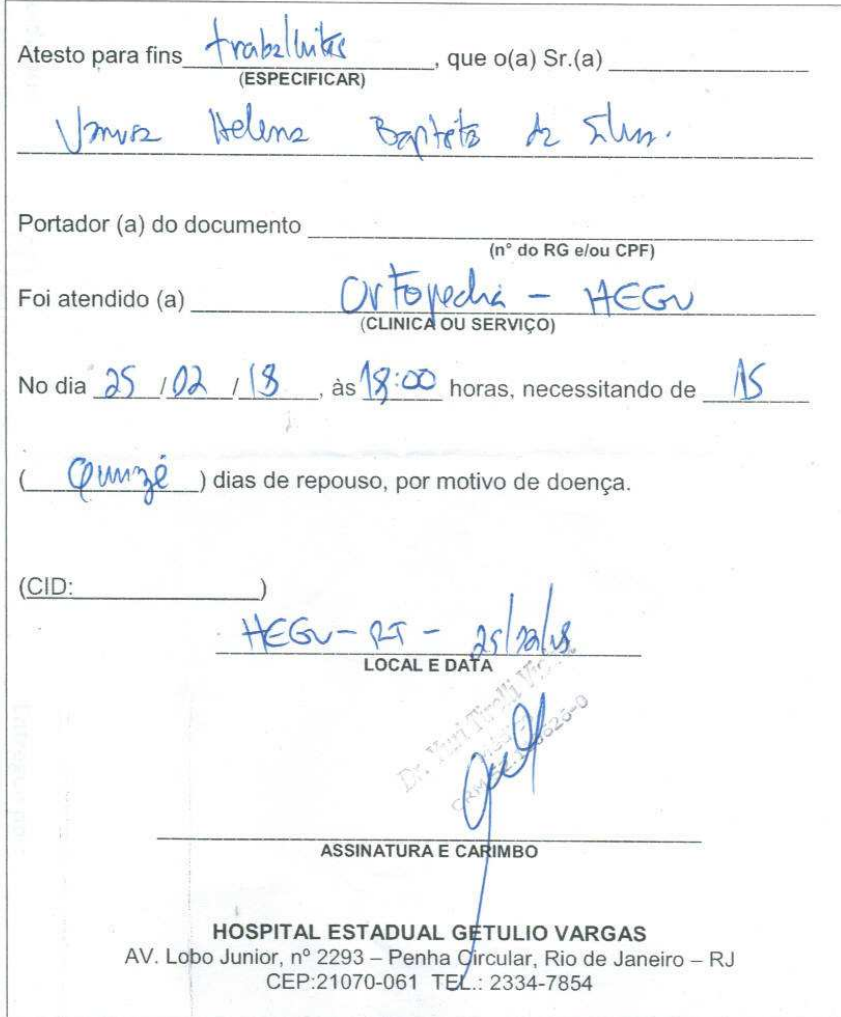 Atesto para fins trabalhistas, que o(a) Sr.(a)
(ESPECIFICAR)
Helena Baptista da Silva.
Portador (a) do documento
(n° do RG e/ou CPF)
Foi atendido (a) Ortopedia - HEGV
(CLINICA OU SERVIÇO)
No dia 25/02/18, às 18:00 horas, necessitando de 15
(Quinze) dias de repouso, por motivo de doença.
(CID: )
HEGV - RJ - 25/02/18.
LOCAL E DATA
Dr. Yuri
CRM
ASSINATURA E CARIMBO
HOSPITAL ESTADUAL GETULIO VARGAS
AV. Lobo Junior, nº 2293 – Penha Circular, Rio de Janeiro – RJ
CEP:21070-061 TEL.: 2334-7854